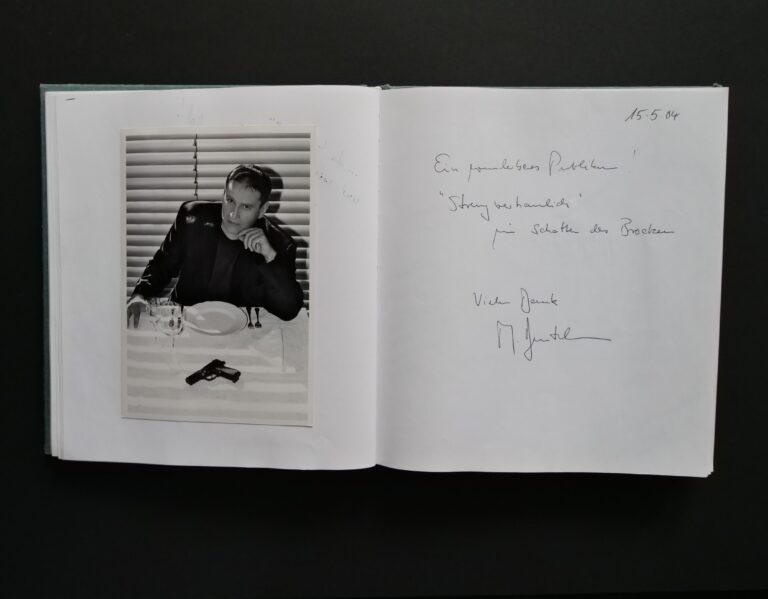 15-5-04
Ein wunderbares Publikum!
"Streng vertraulich"
im Schatten des Brocken
Vielen Dank
M.